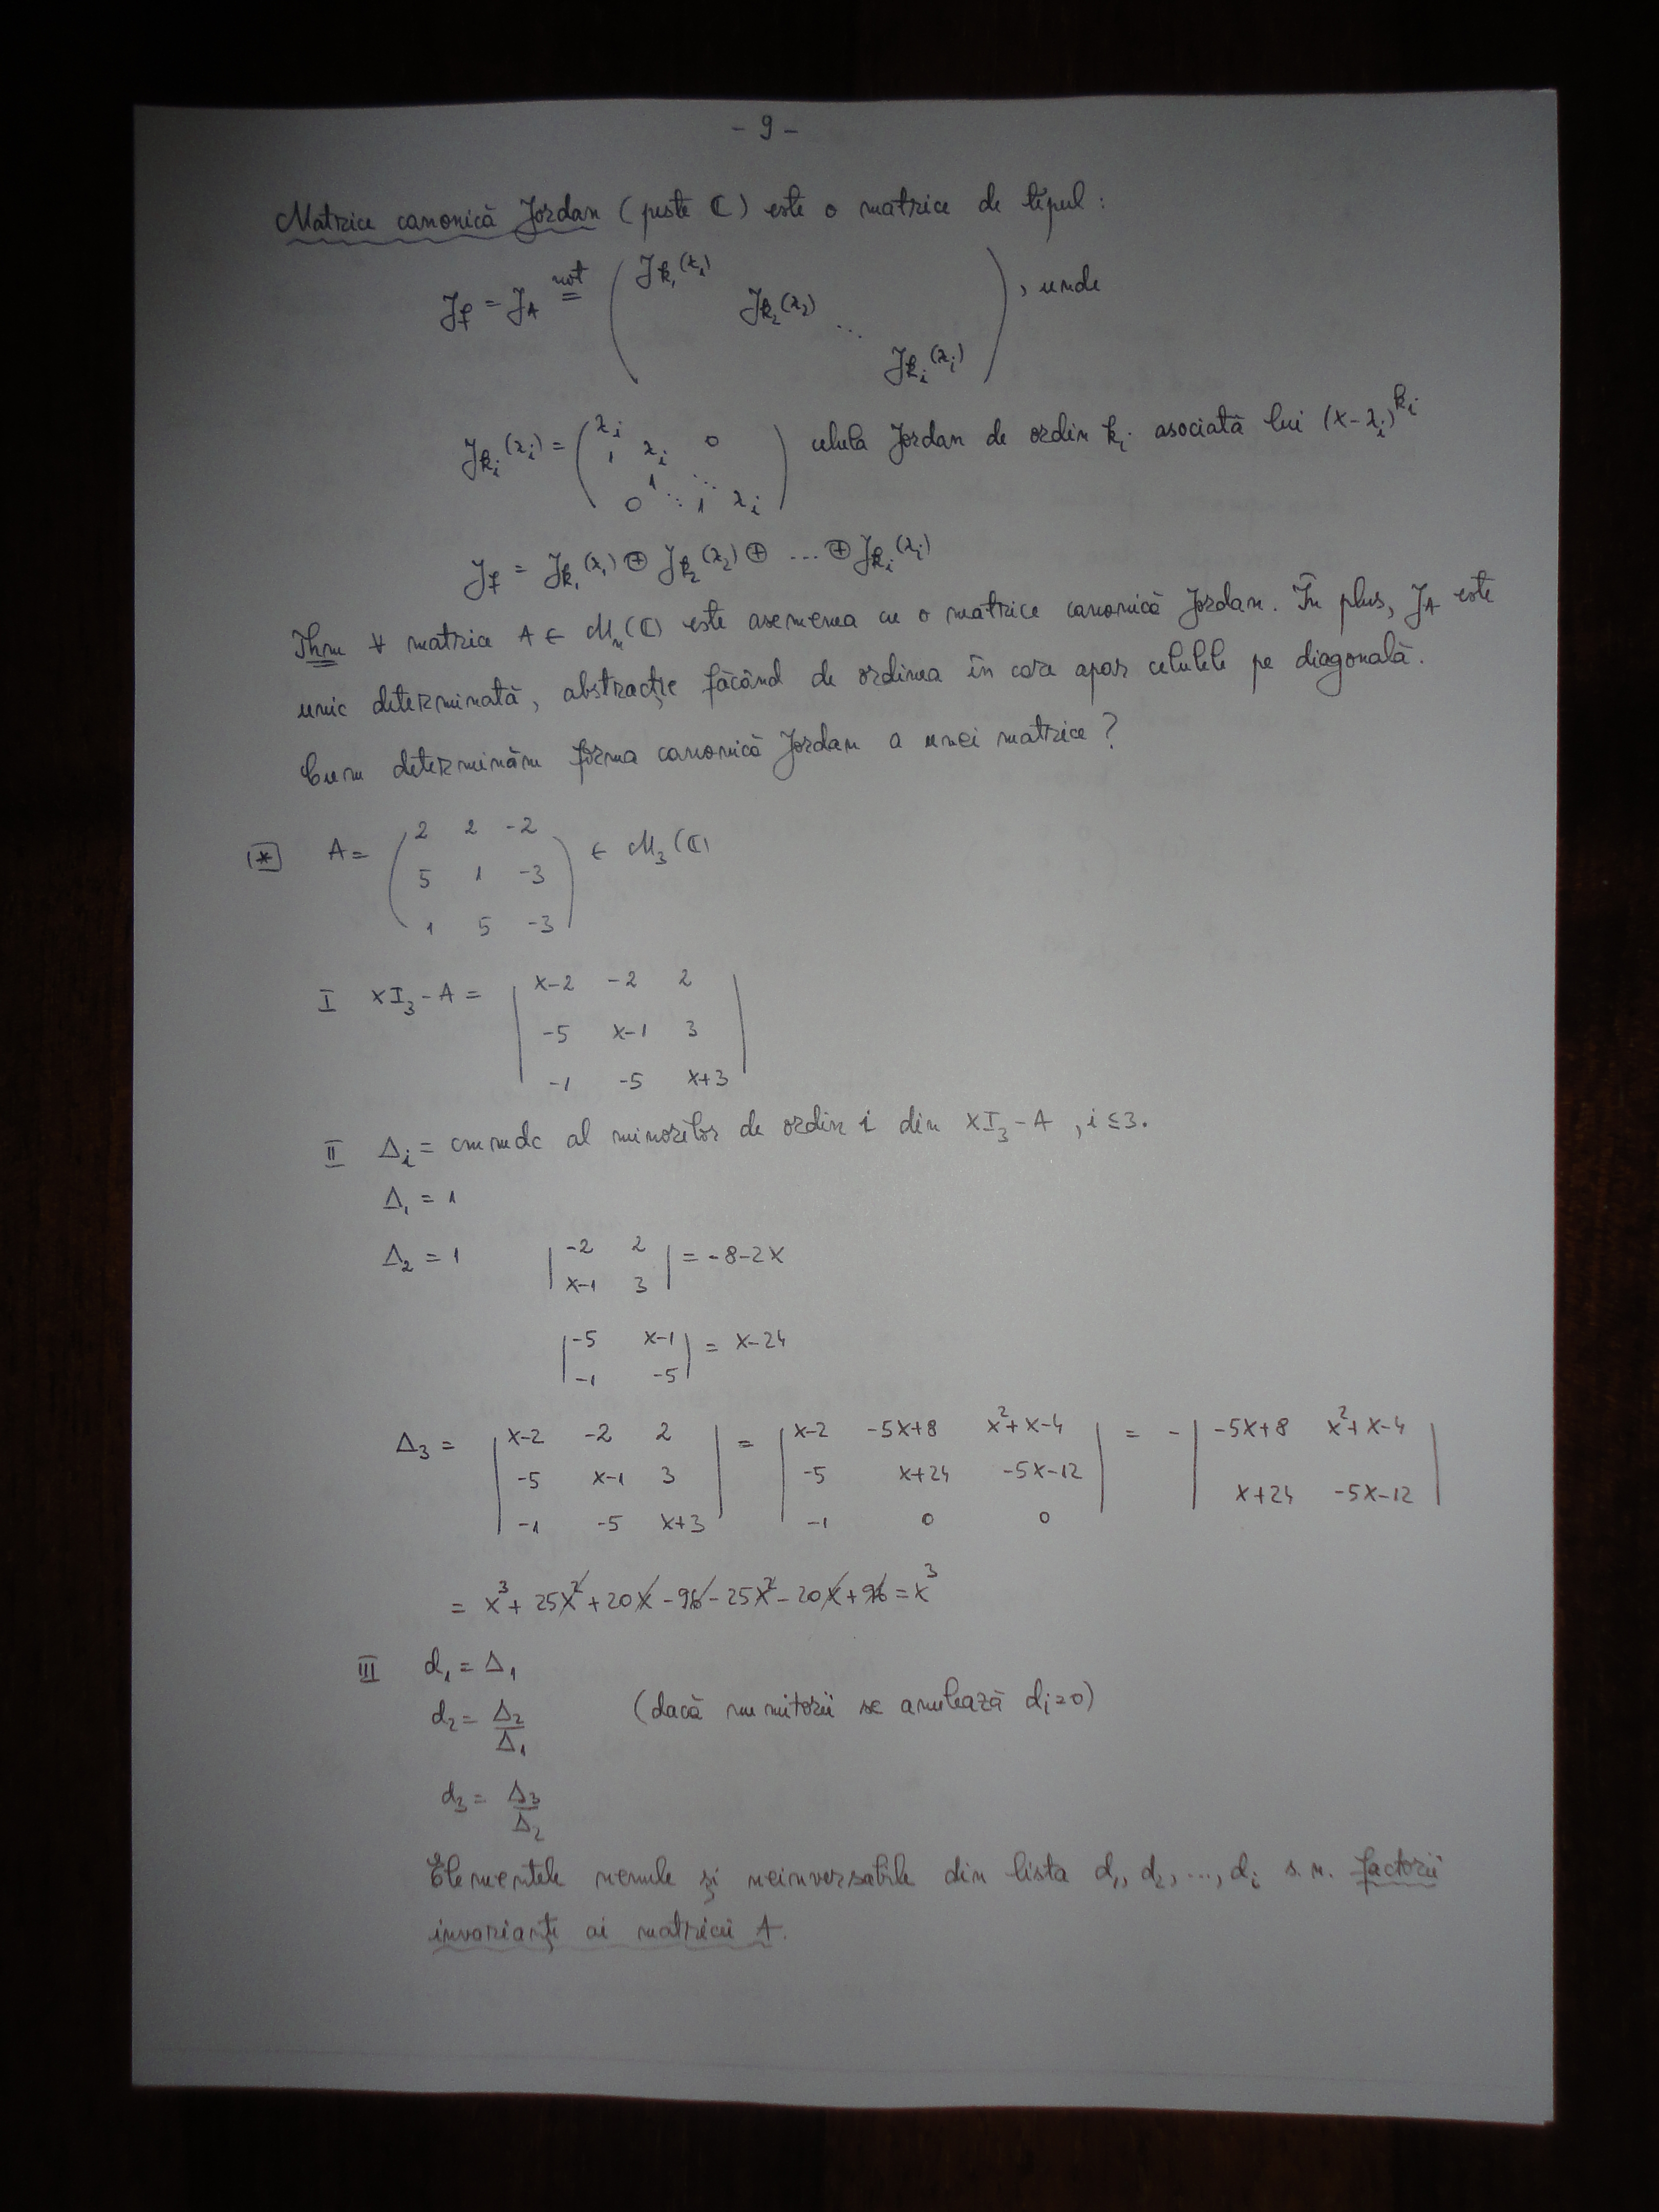 - 9 -
Matrice canonică Jordan (peste ℂ) este o matrice de tipul:
J_f = J_A \overset{not}{=} ( J_{k_1}(λ_1) J_{k_2}(λ_2) ⋱ J_{k_i}(λ_i) ), unde
J_{k_i}(λ_i) = ( λ_i 1 λ_i 0 1 ⋱ 0 ⋱ 1 λ_i ) celula Jordan de ordin k_i asociată lui (x-λ_i)^{k_i}
J_f = J_{k_1}(λ_1) ⊕ J_{k_2}(λ_2) ⊕ ... ⊕ J_{k_i}(λ_i)
Thm ∀ matrice A ∈ M_n(ℂ) este asemenea cu o matrice canonică Jordan. În plus, J_A este
unic determinată, abstracție făcând de ordinea în care apar celulele pe diagonală.
Cum determinăm forma canonică Jordan a unei matrice?
(*) A = ( 2 2 -2
5 1 -3
1 5 -3 ) ∈ M_3(ℂ)
I xI_3 - A = | x-2 -2 2
-5 x-1 3
-1 -5 x+3 |
II Δ_i = cmmdc al minorilor de ordin i din xI_3 - A, i ≤ 3.
Δ_1 = 1
Δ_2 = 1 | -2 2
x-1 3 | = -8-2x
| -5 x-1
-1 -5 | = x-24
Δ_3 = | x-2 -2 2 | = | x-2 -5x+8 x²+x-4 | = - | -5x+8 x²+x-4 |
| -5 x-1 3 | | -5 x+24 -5x-12 | | x+24 -5x-12 |
| -1 -5 x+3 | | -1 0 0 |
= x³ + 25x² + 20x - 96 - 25x² - 20x + 96 = x³
III d_1 = Δ_1
d_2 = Δ_2/Δ_1 (dacă numitorii se anulează d_i=0)
d_3 = Δ_3/Δ_2
Elementele nenule și neinversabile din lista d_1, d_2, ..., d_i s.n. factorii
invarianți ai matricii A.